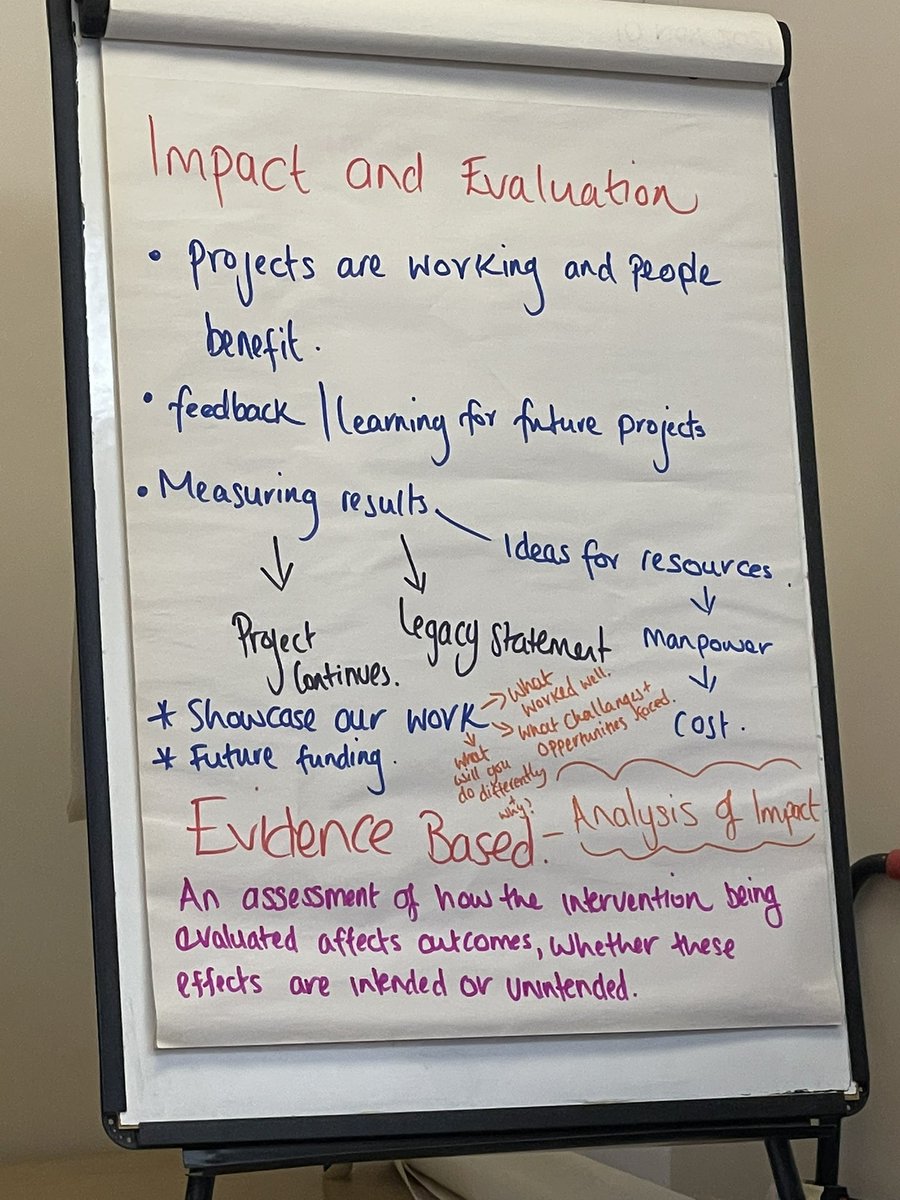 Impact and Evaluation
• Projects are working and people
benefit.
• feedback / learning for future projects
• Measuring results
Ideas for resources.
Manpower
Cost.
Project
Continues.
Legacy Statement
* Showcase our work
What
worked well.
What Challanges +
Opportunities faced.
What
will you
do differently
+
why?
* Future funding.
Evidence Based. - Analysis of Impact
An assessment of how the intervention being
evaluated affects outcomes, whether these
effects are intended or unintended.